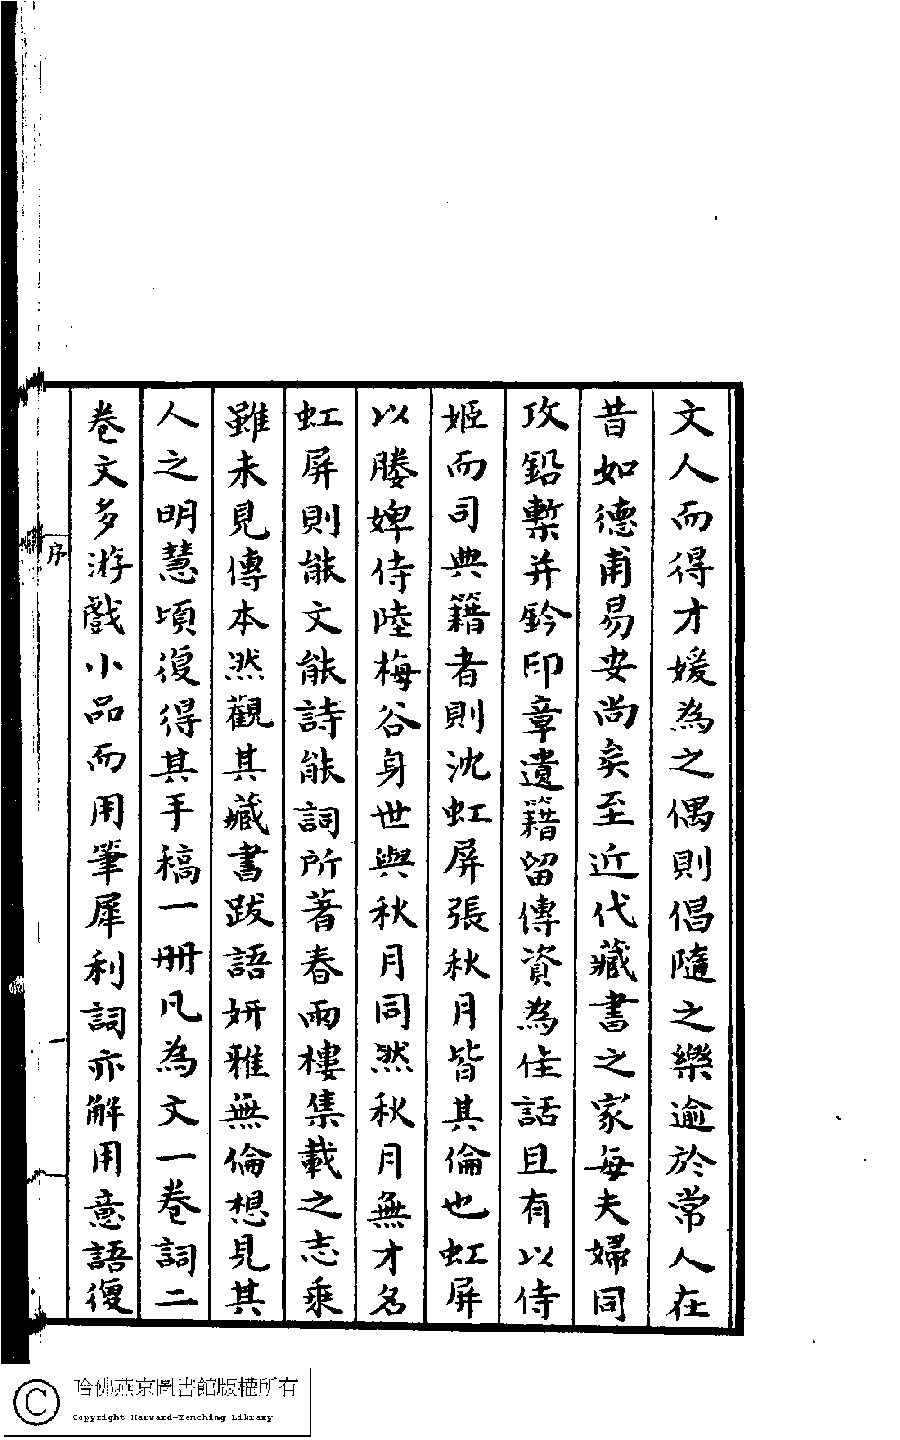 文人而得才媛為之偶則倡隨之樂逾於常人在
昔如德甫易安尚矣至近代藏書之家每夫婦同
攻鉛槧并鈐印章遺籍留傳資為佳話且有以侍
姬而司典籍者則沈虹屏張秋月皆其倫也虹屏
以媵婢侍陸梅谷身世與秋月同然秋月無才名
虹屏則能文能詩能詞所著春雨樓集載之志乘
雖未見傳本然觀其藏書跋語妍雅無倫想見其
人之明慧頃復得其手稿一冊凡為文一卷詞二
卷文多游戲小品而用筆犀利詞亦解用意語復
序
哈佛燕京圖書館版權所有
Copyright Harvard-Yenching Library